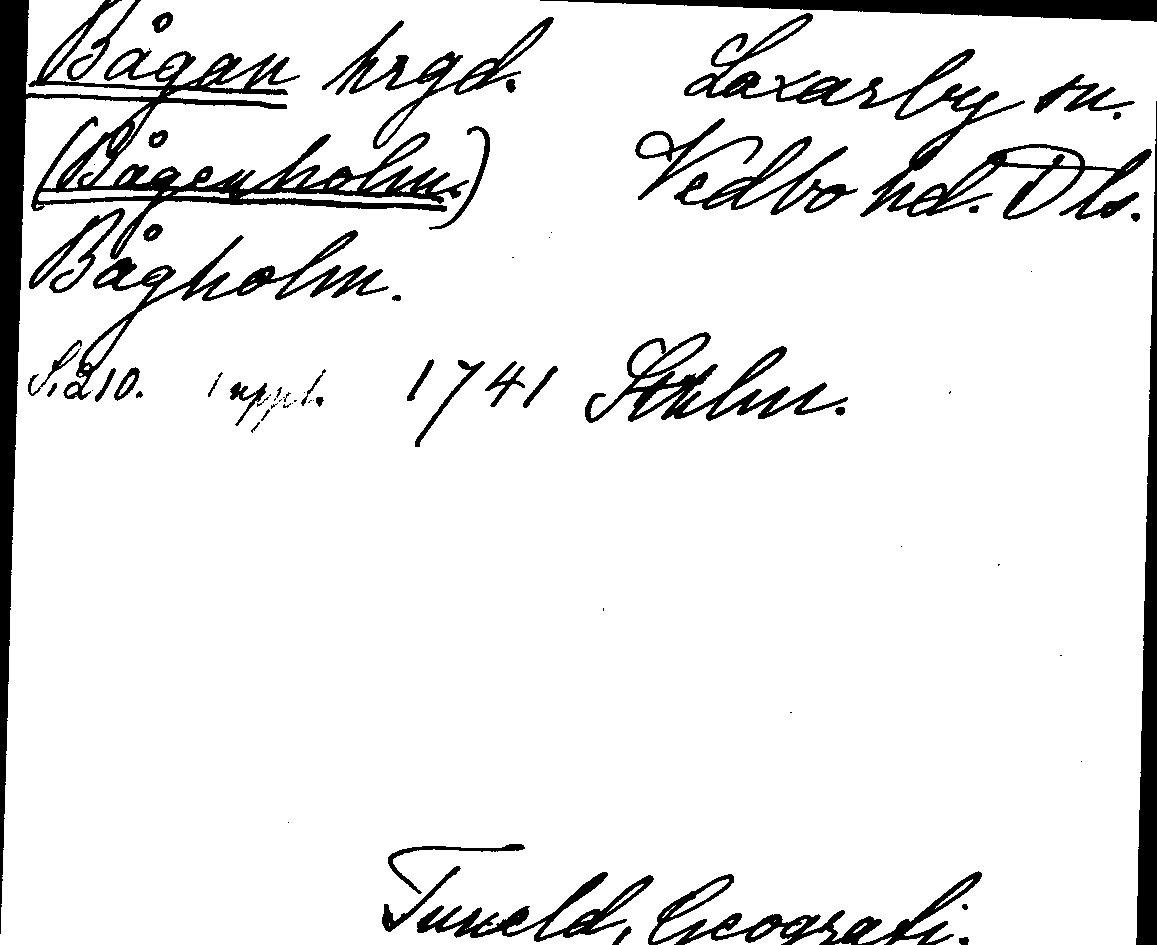 Bågan hrgd. Laxarby sn.
(Bågenholm.) Vedbo hd. Dls.
Bågholm.
S. 210. 1 uppl. 1741 Sthlm.
Tuneld, Geografi.